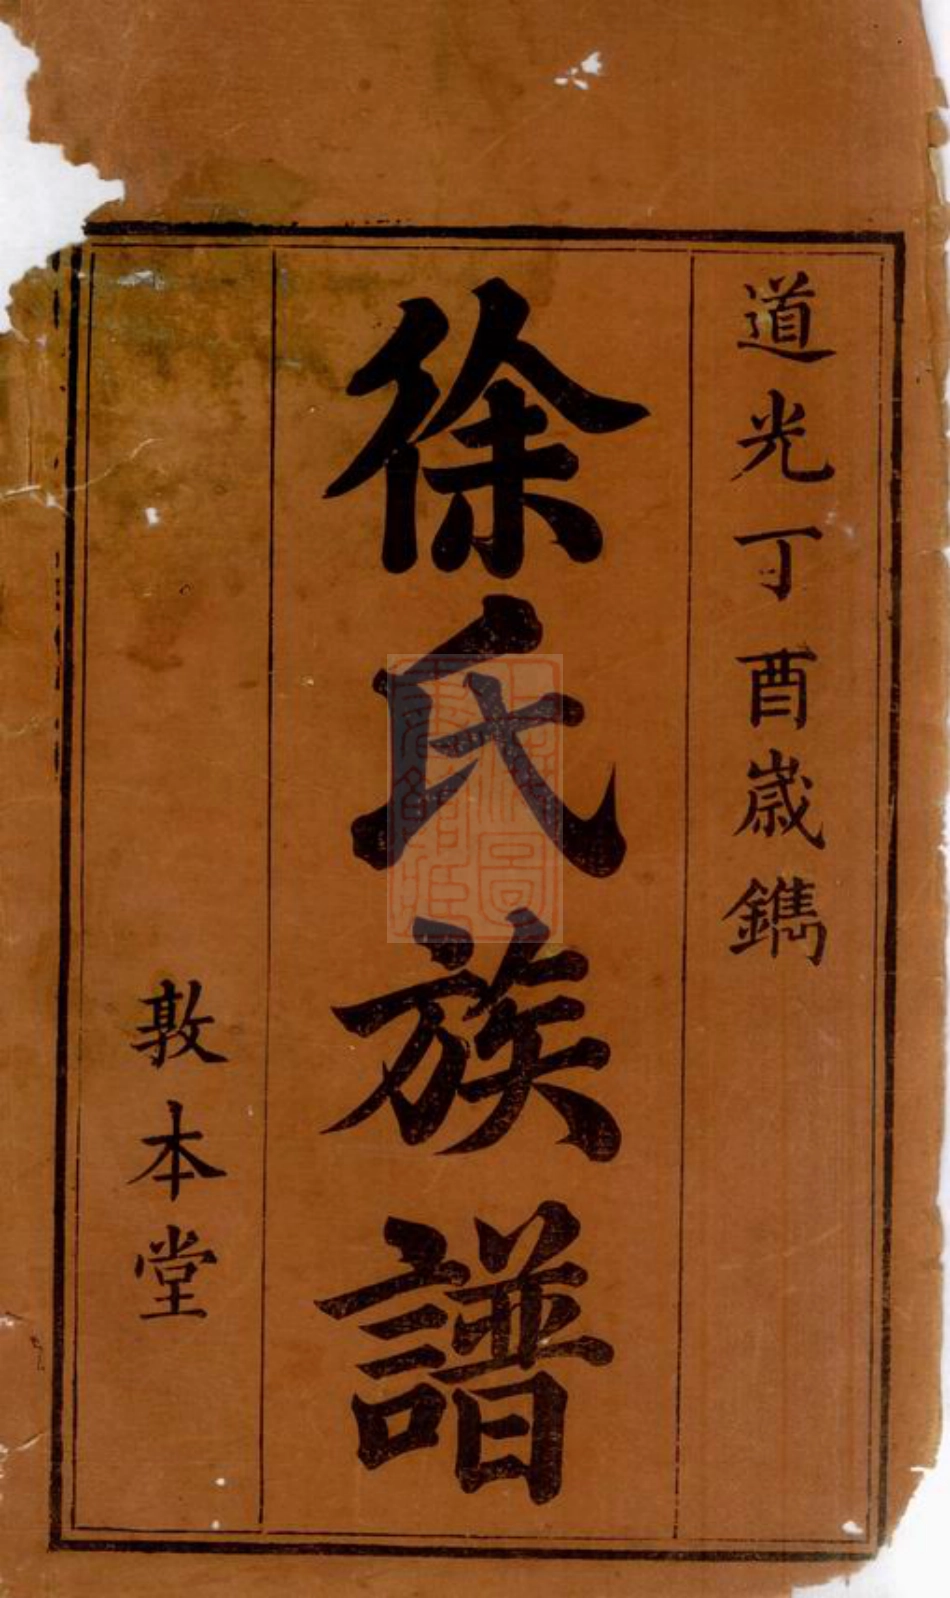 道光丁酉歲鐫
徐氏族譜
敦本堂